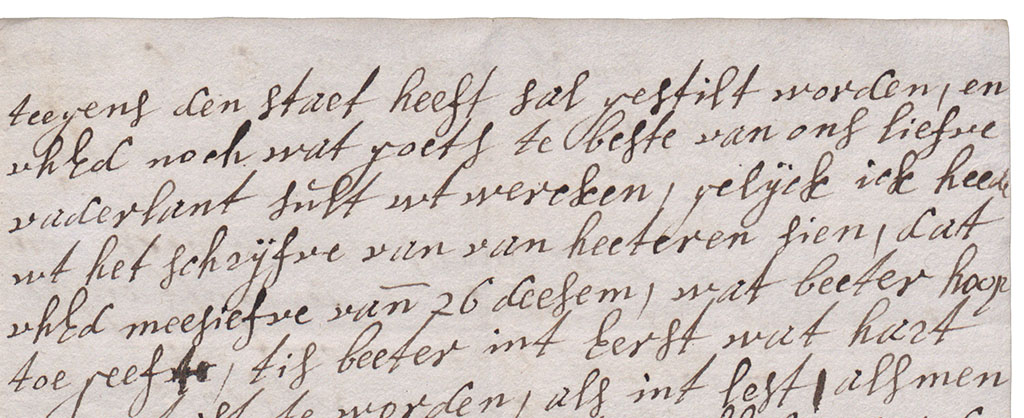 teegens den staet heeft sal gestilt worden, en
vhEd noch wat goets te beste van ons liefve
vaderlant sult wt wercken, gelyck ick heede
wt het schryfve van van heeteren sien, dat
vhEd meesiefve vann 26 deesem, wat beeter hoop
toe geef, tis beeter int Eerst wat hart
te worden, als int lest, alsmen